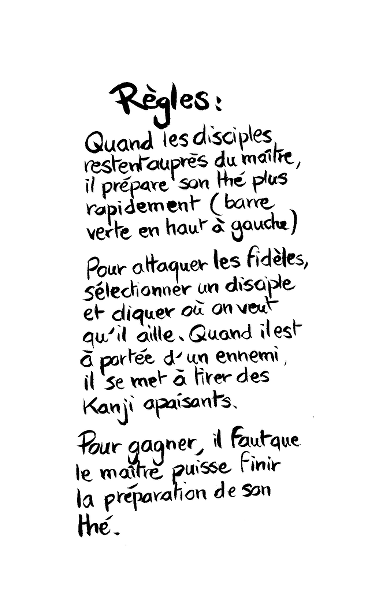 Règles:
Quand les disciples
restent auprès du maître,
il prépare son thé plus
rapidement (barre
verte en haut à gauche)
Pour attaquer les fidèles,
sélectionner un disciple
et cliquer où on veut
qu'il aille. Quand il est
à portée d'un ennemi,
il se met à tirer des
Kanji apaisants.
Pour gagner, il faut que
le maître puisse finir
la préparation de son
thé.